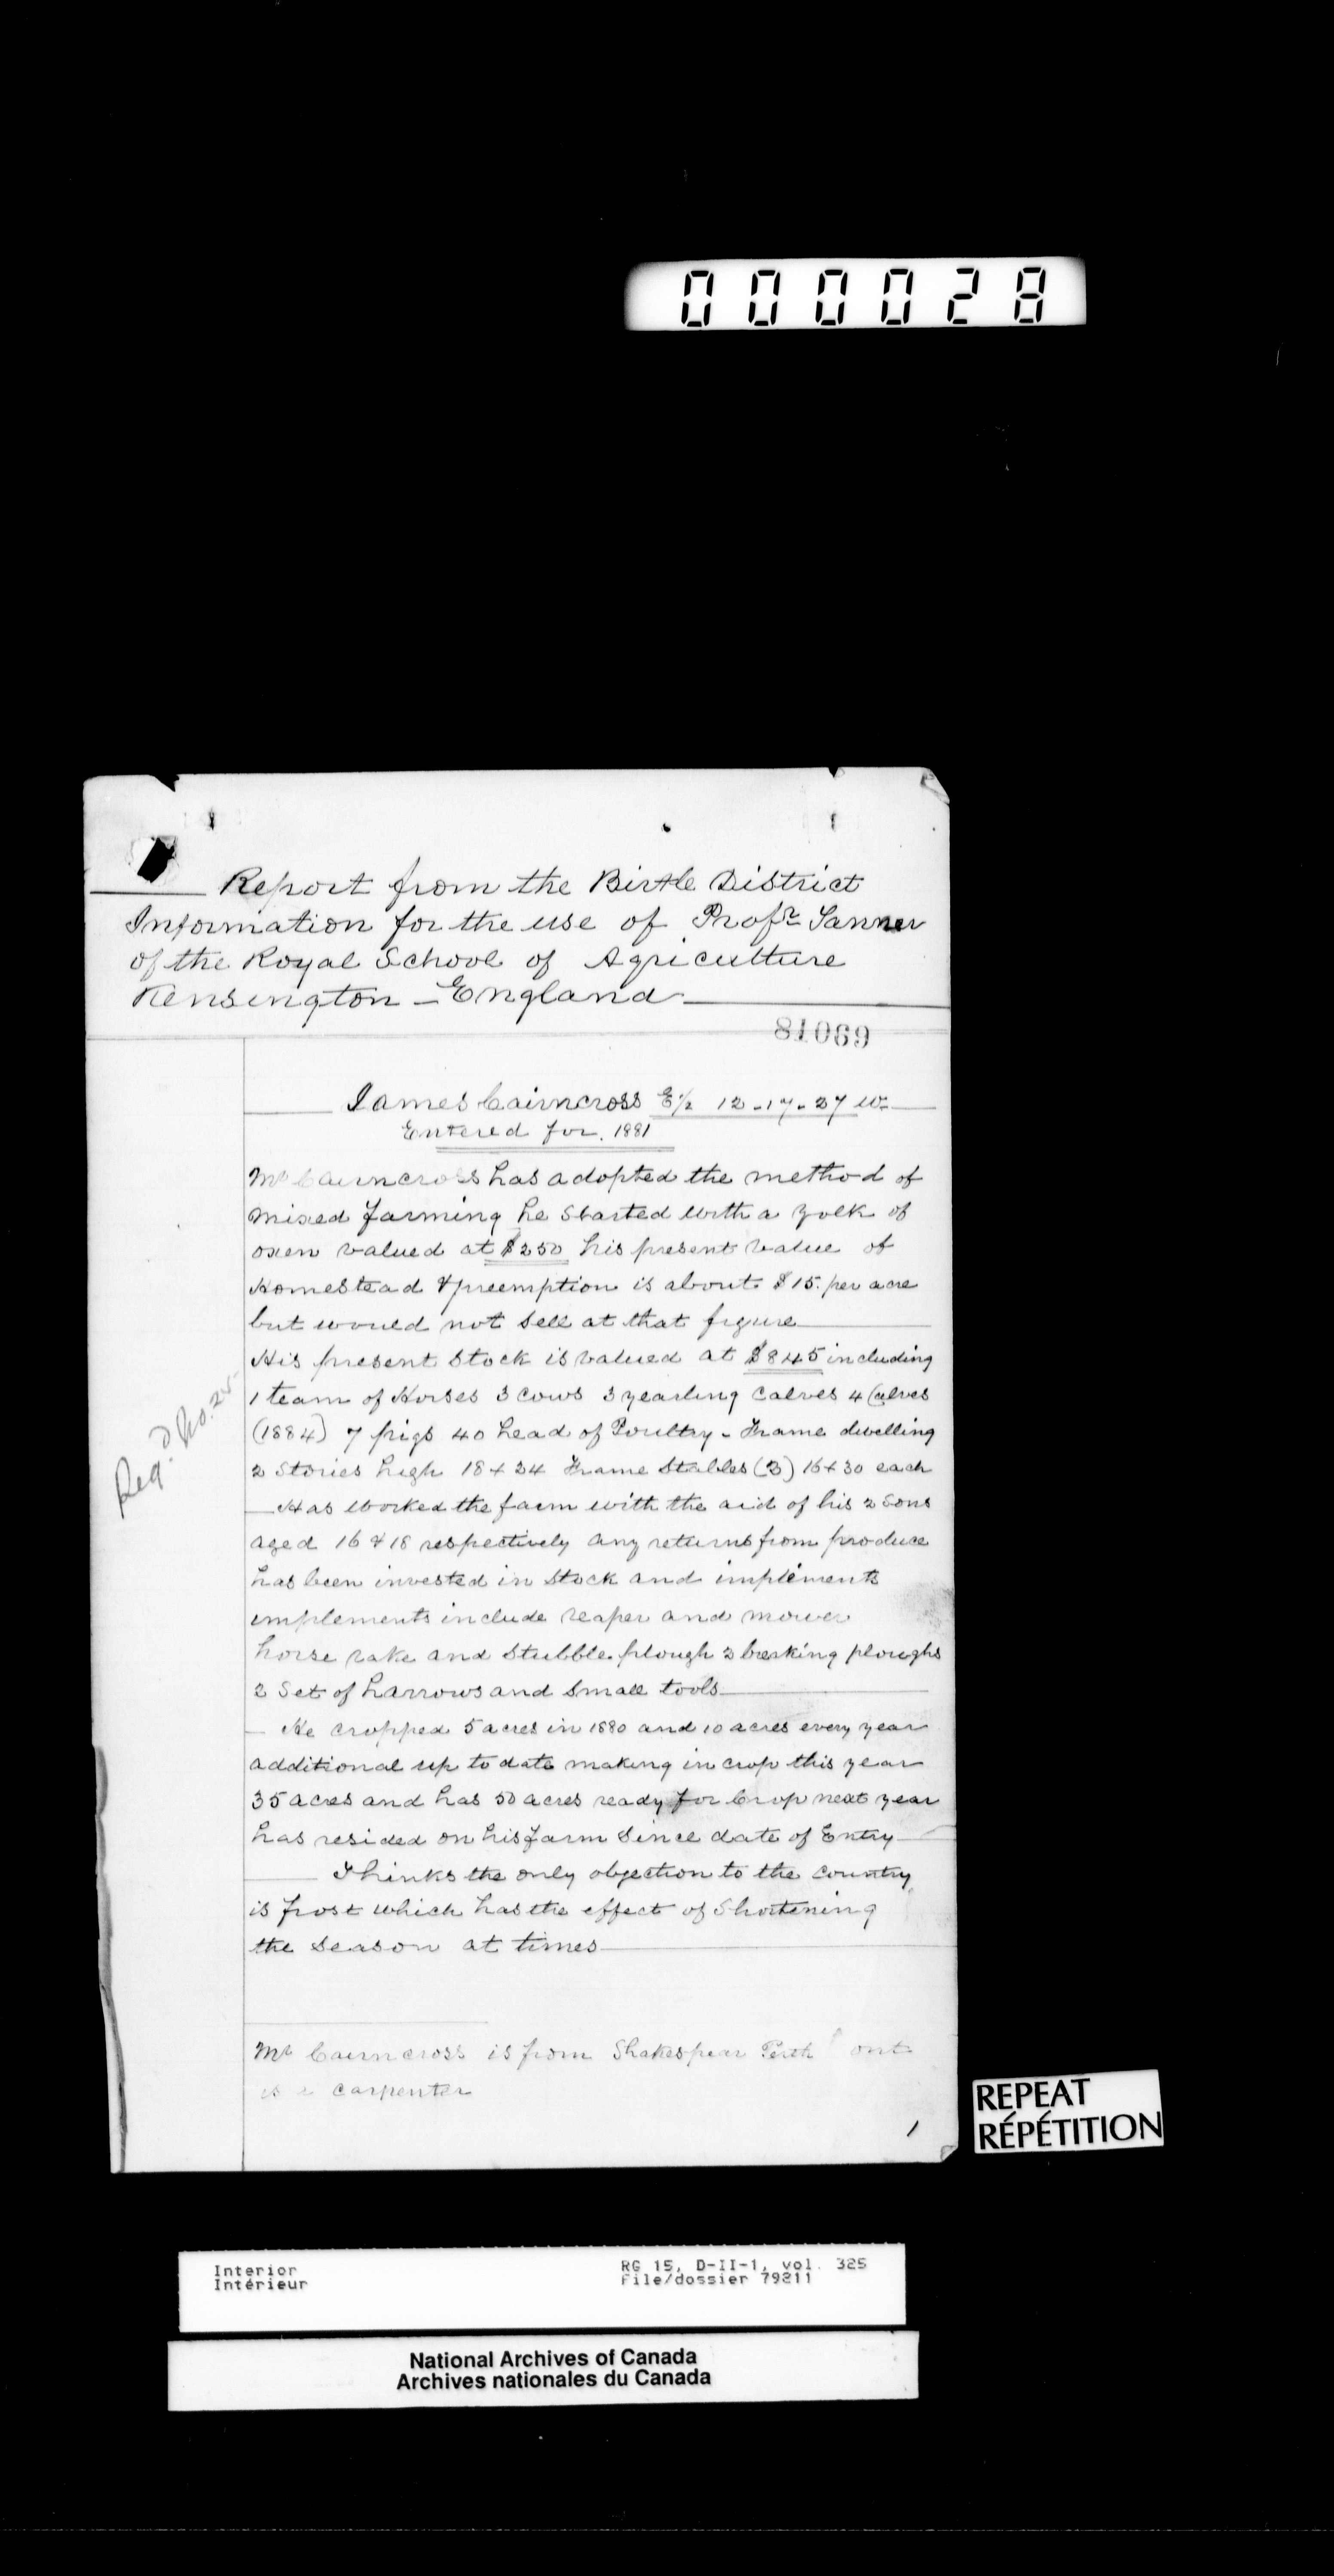 000028
Report from the Birtle District
Information for the use of Profr Tanner
of the Royal School of Agriculture
Kensington - England
81069
James Cairncross E½ 12-17-27 W.
Entered for. 1881
Mr Cairncross has adopted the method of
mixed farming he started with a yolk of
oxen valued at $250 his present value of
Homestead & preemption is about $15. per acre
but would not sell at that figure
His present stock is valued at $845 including
1 team of Horses 3 cows 3 yearling calves 4 Calves
(1884) 7 pigs 40 head of Poultry - Frame dwelling
2 Stories high 18 x 24 Frame Stables (3) 16 x 30 each
Has worked the farm with the aid of his 2 Sons
aged 16 & 18 respectively any returns from produce
has been invested in stock and implements
implements include reaper and mower
horse rake and stubble plough 2 breaking ploughs
2 Set of harrows and small tools
He cropped 5 acres in 1880 and 10 acres every year
additional up to date making in crop this year
35 acres and has 50 acres ready for Crop next year
has resided on his farm since date of Entry
Thinks the only objection to the country
is frost which has the effect of Shortening
the season at times
Mr Cairncross is from Shakespear Perth ont
is a carpenter
1
REPEAT
RÉPÉTITION
Interior RG 15, D-II-1, vol. 325
Intérieur File/dossier 79211
National Archives of Canada
Archives nationales du Canada